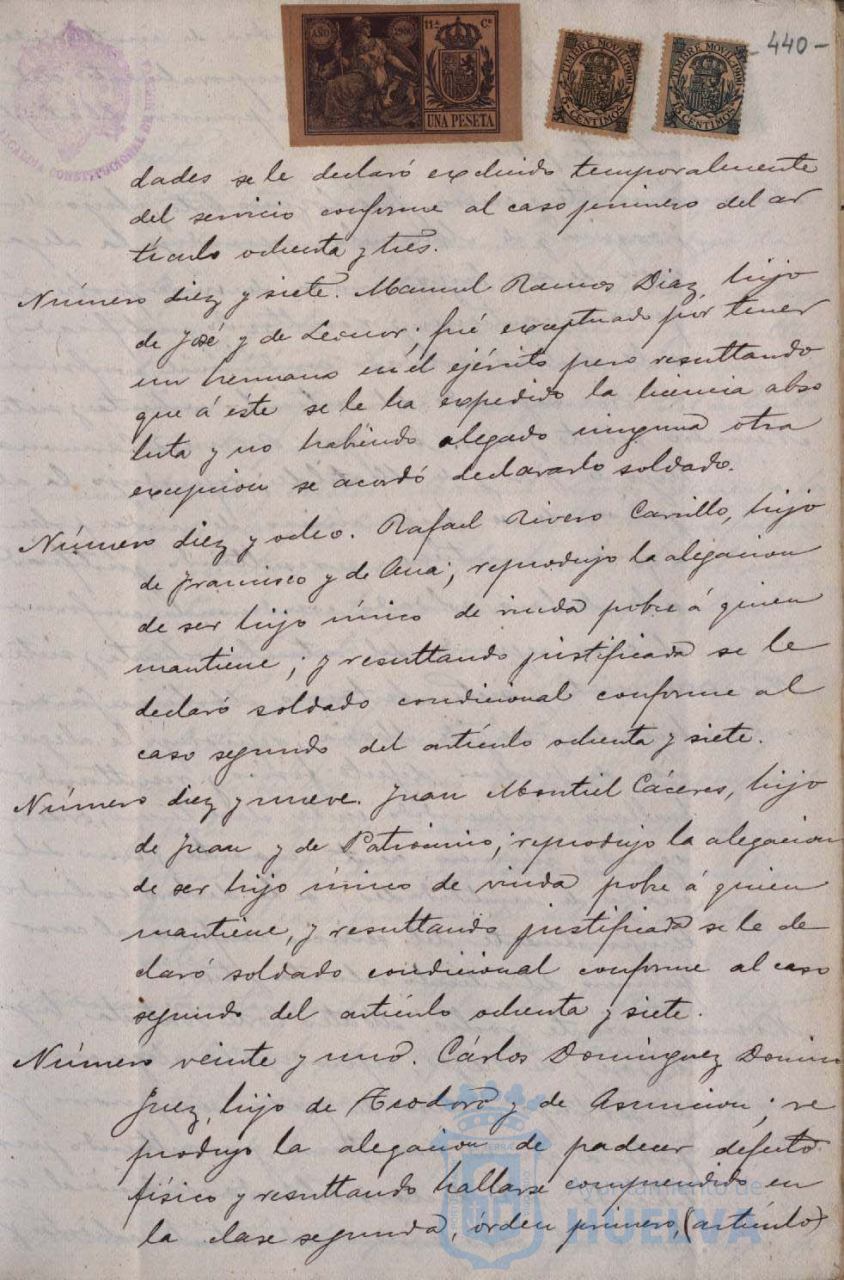 - 440 -
AÑO 1900
11ª Cª
UNA PESETA
TIMBRE MOVIL 1900
5 CENTIMOS
TIMBRE MOVIL 1900
5 CENTIMOS
ALCALDIA CONSTITUCIONAL DE
dades se le declaró excluido temporalmente
del servicio conforme al caso primero del ar
tículo ochenta y tres.
Número diez y siete. Manuel Ramos Diaz, hijo
de José y de Leonor; fué exceptuado por tener
un hermano en el ejército pero resultando
que á este se le ha expedido la licencia abso
luta y no habiendo alegado ninguna otra
excepcion se acordó declararlo soldado.
Número diez y ocho. Rafael Rivero Carrillo, hijo
de Francisco y de Ana; reprodujo la alegacion
de ser hijo único de viuda pobre á quien
mantiene; y resultando justificada se le
declaró soldado condicional conforme al
caso segundo del artículo ochenta y siete.
Número diez y nueve. Juan Montiel Cáceres, hijo
de Juan y de Patrocinio; reprodujo la alegacion
de ser hijo único de viuda pobre á quien
mantiene, y resultando justificada se le de
claró soldado condicional conforme al caso
segundo del artículo ochenta y siete.
Número veinte y uno. Cárlos Dominguez Domin
guez, hijo de Teodoro y de Asuncion; re
produjo la alegacion de padecer defecto
físico y resultando hallarse comprendido en
la clase segunda, órden primero, (artículo)
Ayuntamiento de
HUELVA